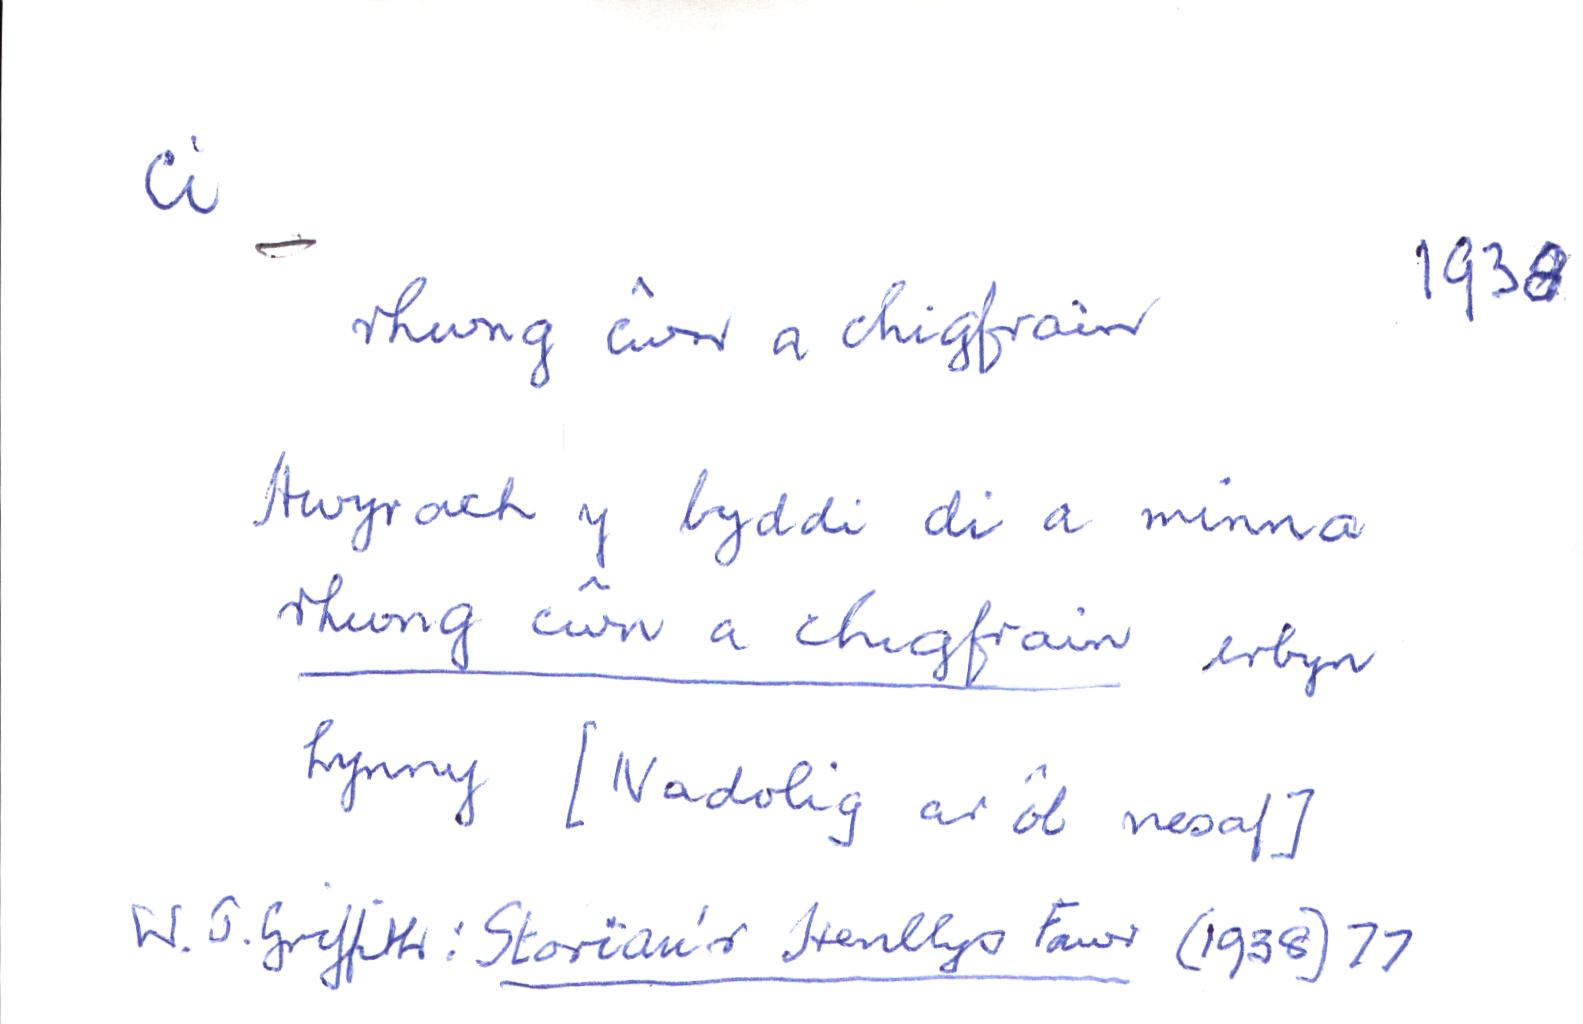 ci
1938
rhwng cŵn a chigfrain
Hwyrach y byddi di a minna
rhwng cŵn a chigfrain erbyn
hynny [Nadolig ar ôl nesaf]
W. J. Griffith: Storïau'r Henllys Fawr (1938) 77